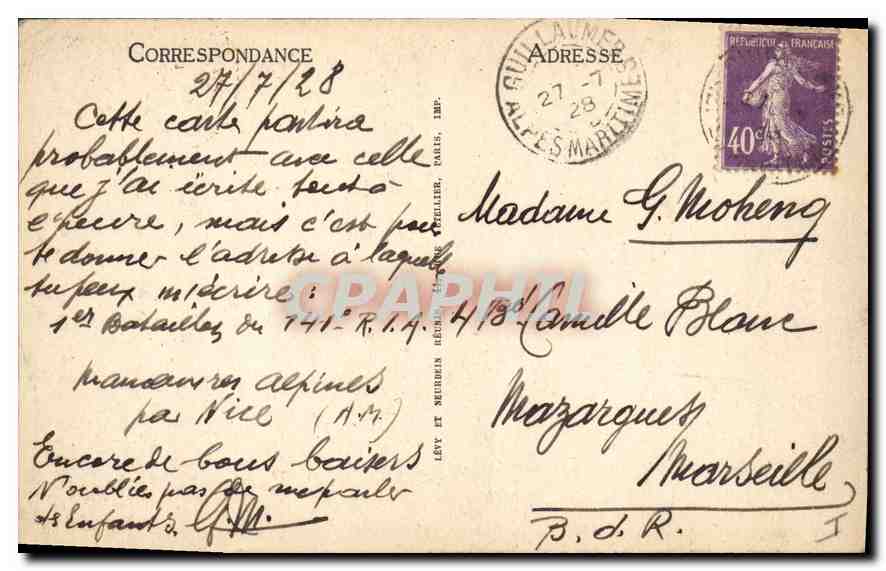 CORRESPONDANCE
27/7/28
Cette carte partira
probablement avec celle
que j'ai écrite tout à
mais c'est pour
te donner l'adresse à laquelle
tu peux m'écrire :
1er Bataillon du 141e R.I.A.
Manœuvres alpines
par Nice (A.M.)
Encore de bons baisers
N'oublies pas de me parler
des Enfants. G.M.
LÉVY ET NEURDEIN RÉUNIS, 44, LETELLIER, PARIS, IMP.
ADRESSE
GUILLAUMES
27-7
28
ALPES MARITIMES
REPUBLIQUE FRANÇAISE
40c
POSTES
Madame G. Moheng
4 Bd Camille Blanc
Mazargues
Marseille
B. d. R.
CPARHIL